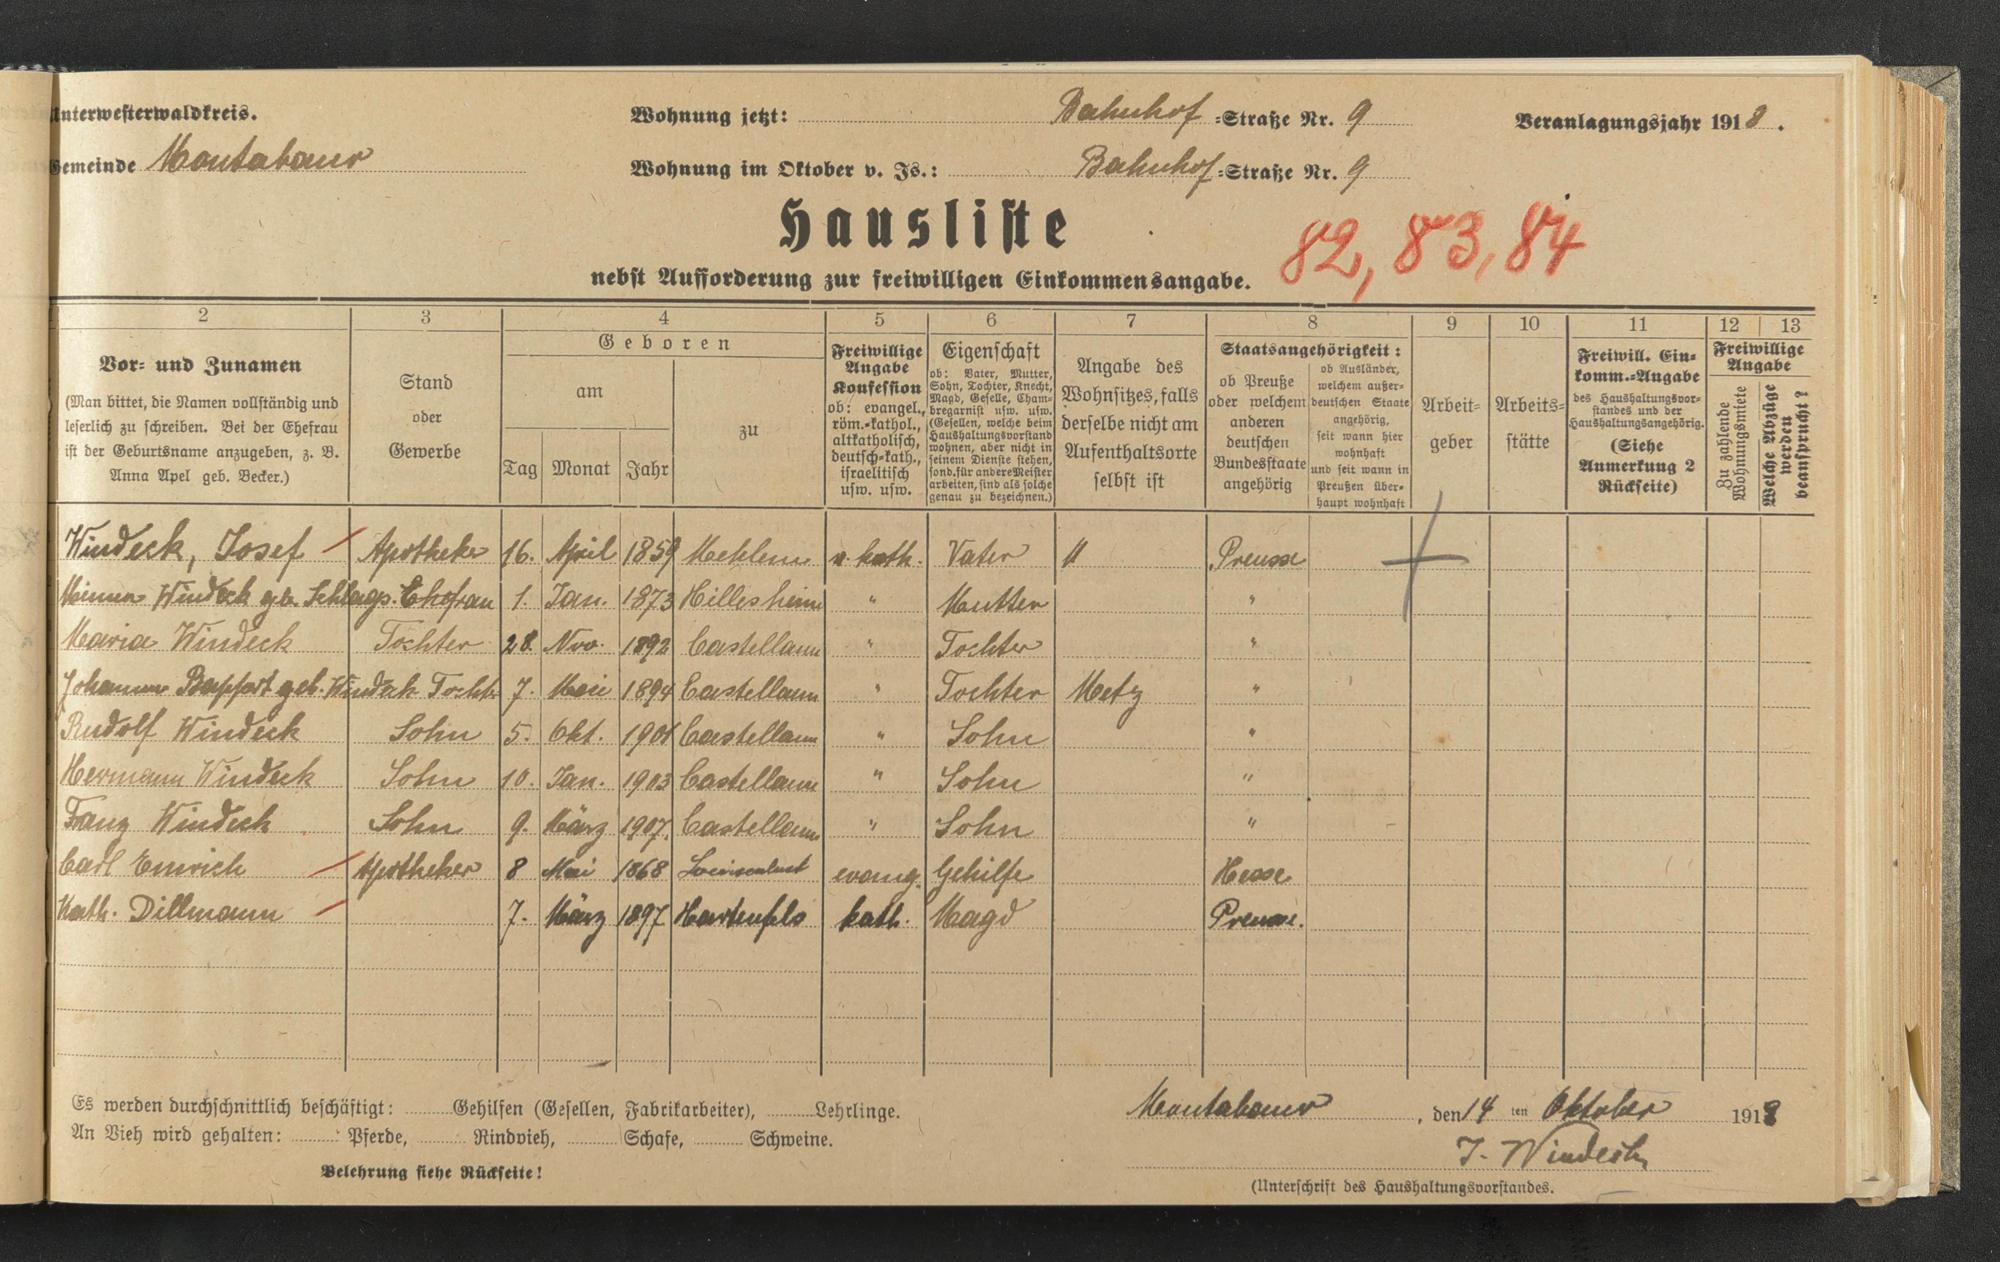 Unterwesterwaldkreis.
Wohnung jetzt: Bahnhof -Straße Nr. 9
Veranlagungsjahr 1918.
Gemeinde Montabaur
Wohnung im Oktober v. Js.: Bahnhof -Straße Nr. 9
Hausliste
82, 83, 84
nebst Aufforderung zur freiwilligen Einkommensangabe.
2 3 4 5 6 7 8 9 10 11 12 13
Vor- und Zunamen
(Man bittet, die Namen vollständig und
leserlich zu schreiben. Bei der Ehefrau
ist der Geburtsname anzugeben, z. B.
Anna Apel geb. Becker.)
Stand
oder
Gewerbe
Geboren
am
Tag Monat Jahr
zu
Freiwillige
Angabe
Konfession
ob: evangel.,
röm.-kathol.,
altkatholisch,
deutsch-kath.,
israelitisch
usw. usw.
Eigenschaft
ob: Vater, Mutter,
Sohn, Tochter, Knecht,
Magd, Geselle, Cham-
bregarnist usw. usw.
(Gesellen, welche beim
Haushaltungsvorstand
wohnen, aber nicht in
seinem Dienste stehen,
sond. für andere Meister
arbeiten, sind als solche
genau zu bezeichnen.)
Angabe des
Wohnsitzes, falls
derselbe nicht am
Aufenthaltsorte
selbst ist
Staatsangehörigkeit:
ob Preuße
oder welchem
anderen
deutschen
Bundesstaate
angehörig
ob Ausländer,
welchem außer-
deutschen Staate
angehörig,
seit wann hier
wohnhaft
und seit wann in
Preußen über-
haupt wohnhaft
Arbeit-
geber
Arbeits-
stätte
Freiwill. Ein-
komm.-Angabe
des Haushaltungsvor-
standes und der
Haushaltungsangehörig.
(Siehe
Anmerkung 2
Rückseite)
Freiwillige
Angabe
Zu zahlende
Wohnungsmiete
Welche Abzüge
werden
beansprucht?
Windeck, Josef Apotheker 16. April 1859 r. kath. Vater " Preusse
Windeck geb. Ehefrau 1. Jan. 1873 Hillesheim " Mutter "
Maria Windeck Tochter 28. Nov. 1892 Castellaun " Tochter "
geb. Windeck Tochter 7. Mai 1894 Castellaun " Tochter Metz "
Rudolf Windeck Sohn 5. Okt. 1901 Castellaun " Sohn "
Hermann Windeck Sohn 10. Jan. 1903 Castellaun " Sohn "
Franz Windeck Sohn 9. März 1907. Castellaun " Sohn "
Carl Emrich Apotheker 8 Mai 1868 evang. Gehilfe Hesse
Kath. Dillmann 7. März 1897 Hartenfels kath. Magd Preusse.
Es werden durchschnittlich beschäftigt: Gehilfen (Gesellen, Fabrikarbeiter), Lehrlinge.
An Vieh wird gehalten: Pferde, Rindvieh, Schafe, Schweine.
Belehrung siehe Rückseite!
Montabaur, den 14 ten Oktober 1918
J. Windeck
(Unterschrift des Haushaltungsvorstandes.